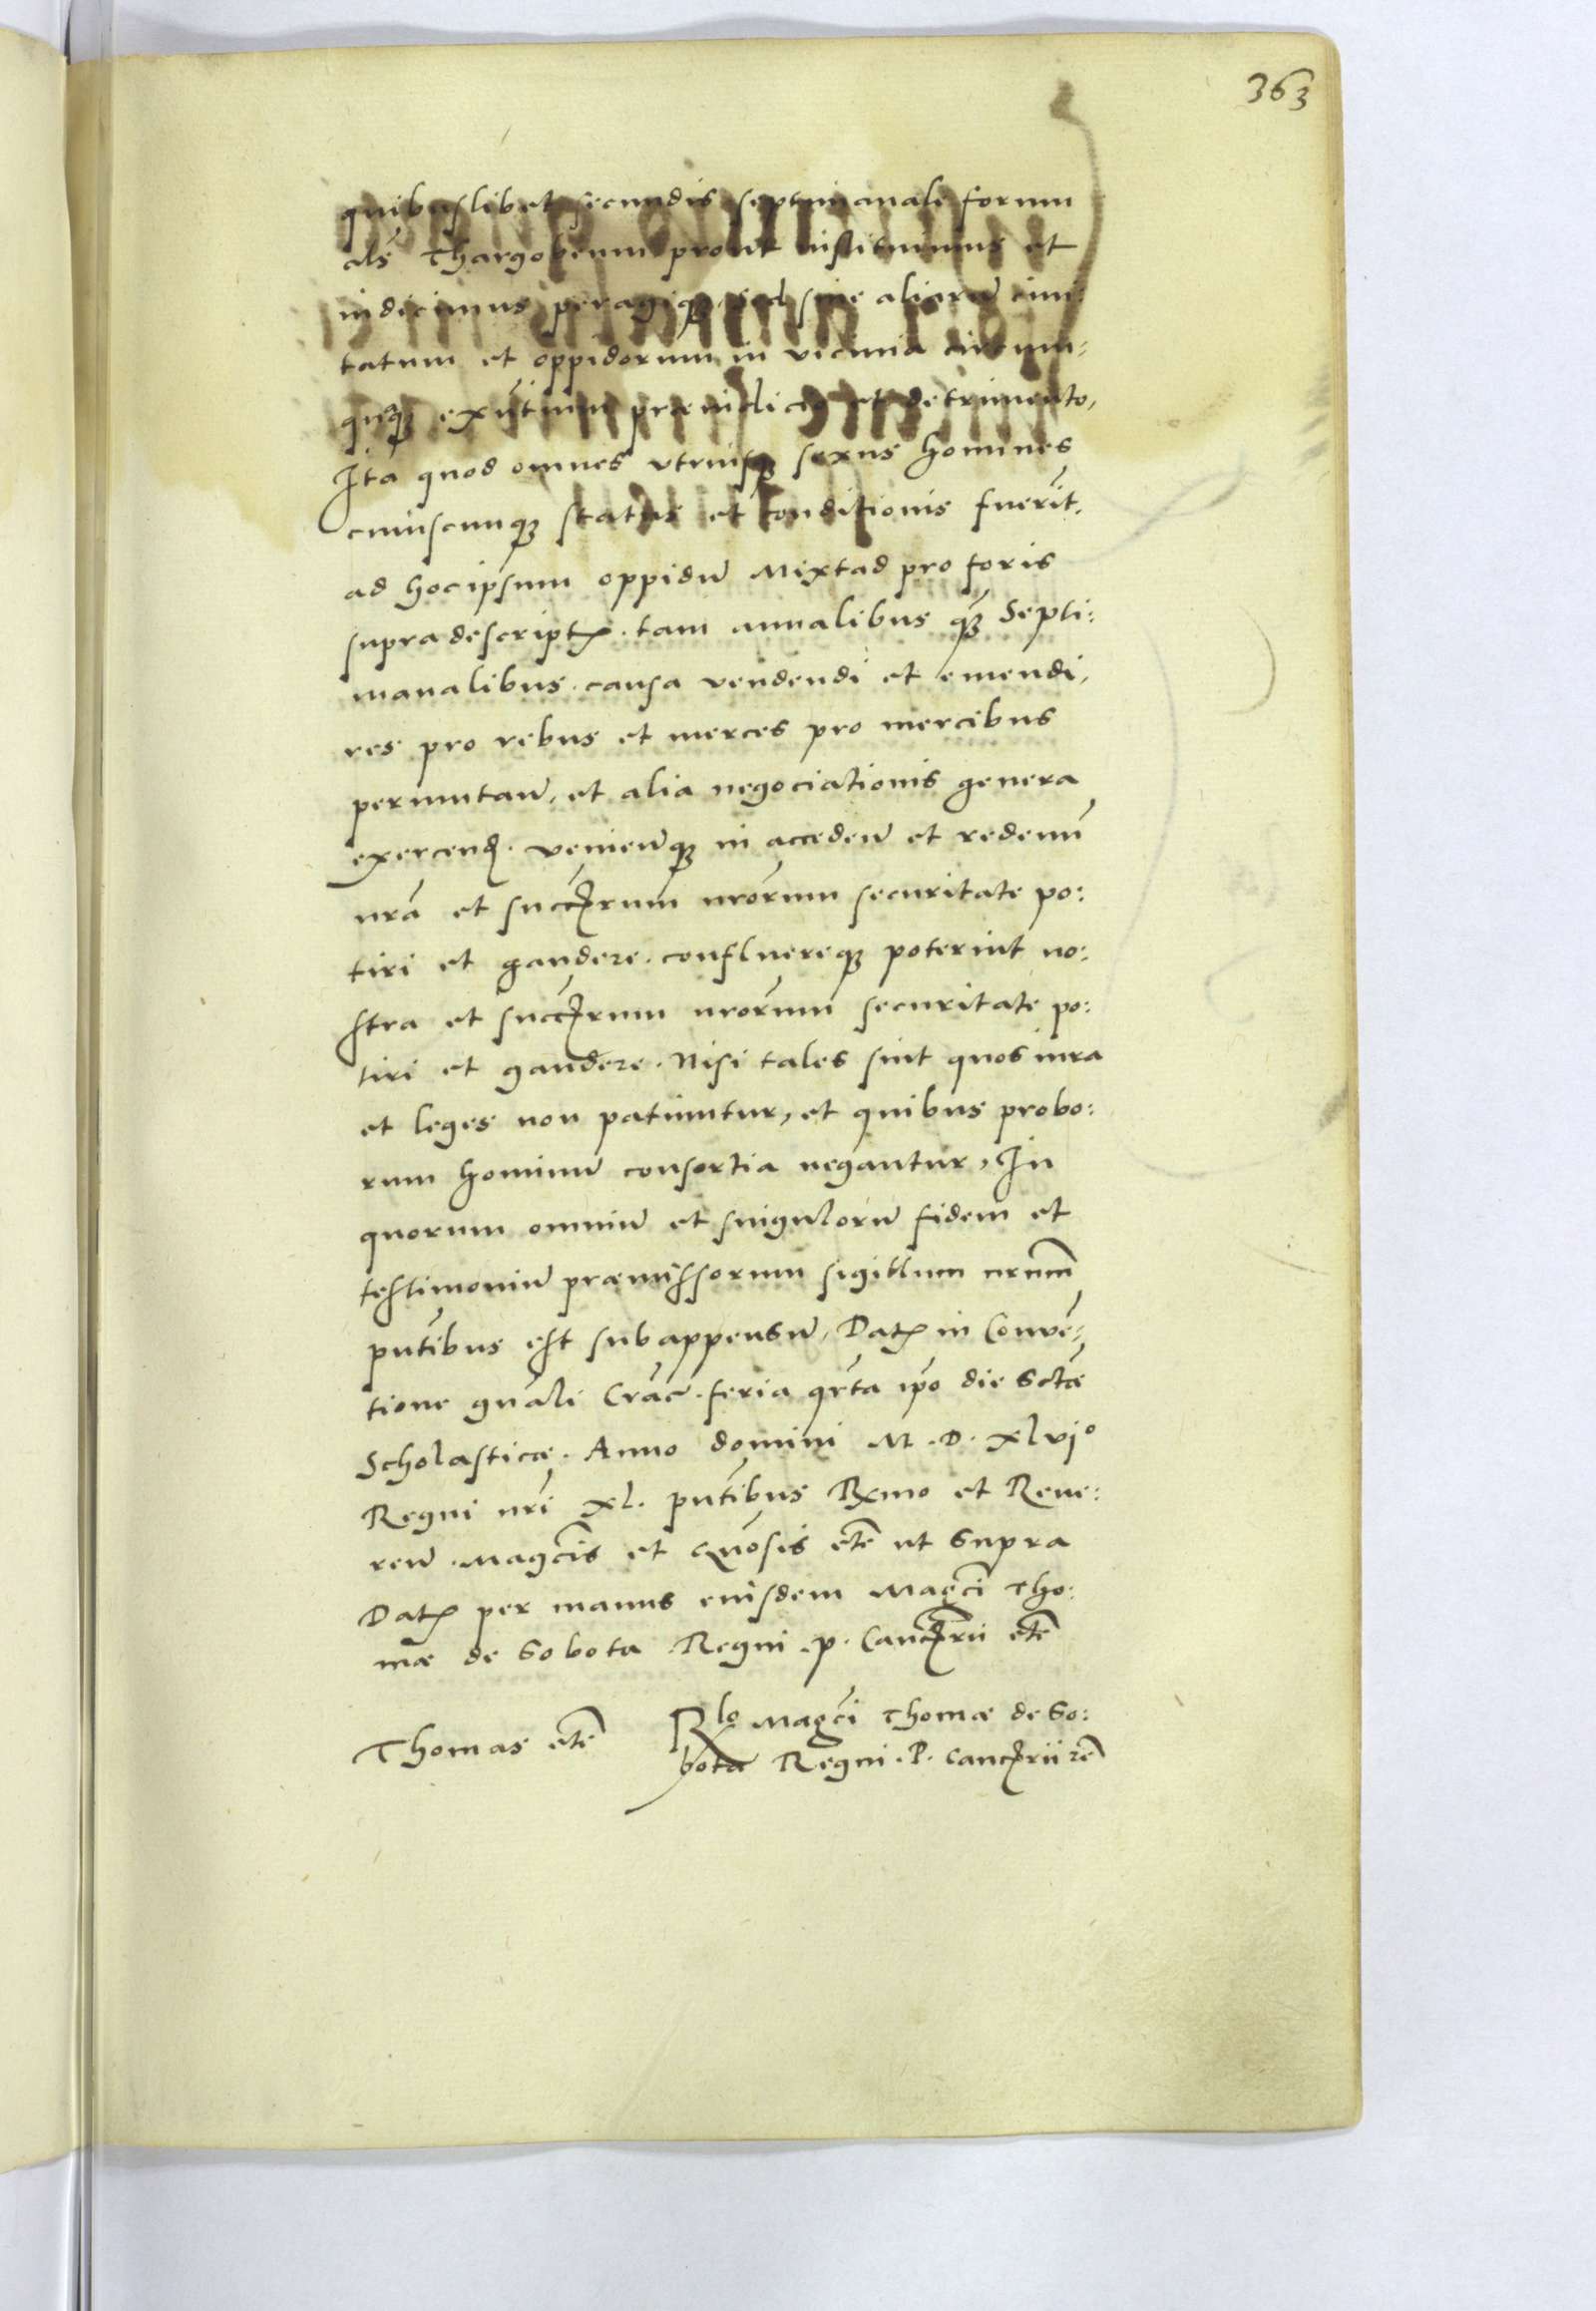 363
quibuslibet secundis septimanale forum
als Thargovenum prout instituimus et
indicimus peragiq3. sed sine aliorū civi:
tatum et oppidorum in vicinia circum:
quaq3 exñtium præiudicio et detrimento,
Ita quod omnes vtriusq3 sexus homines
cuiuscunq3 status et conditionis fuerīt,
ad hocipsum oppidū Mixtad pro foris
supradescriptꝭ. tam annalibus q̃3 Septi:
manalibus. causa vendendi et emendi,
res pro rebus et merces pro mercibus
permutañ, et alia negociationis genera
exercenđ. venienq3 in accedeñ et redeuñ
nrã et succꝭrum nrõrum securitate po:
tiri et gaudere. confluereq3 poterint no:
stra et succꝭrum nrõrum securitate po:
tiri et gaudere. Nisi tales sint quos iura
et leges non patiuntur, et quibus probo:
rum hominū consortia negantur, In
quorum omniū et singulorū fidem et
testimoniū præmissorum sigillum nrũm
pñtibus est subappensū, Datꝭ in Convē:
tione gñali Crac̃. feria qrta ipõ die Sctæ
Scholasticæ. Anno domini M.D.xlvjº
Regni nrĩ xl. pñtibus Rxmo et Reve:
reñ. Magcis et Gñosis etc̃ ut supra
Datꝭ per manus eiusdem Magci Tho:
mæ de Sobota Regni .p. Cancꝭrii etc̃
Thomas etc̃
Rlo Magci Thomæ de So:
bota Regni .P. Cancꝭrii etc̃